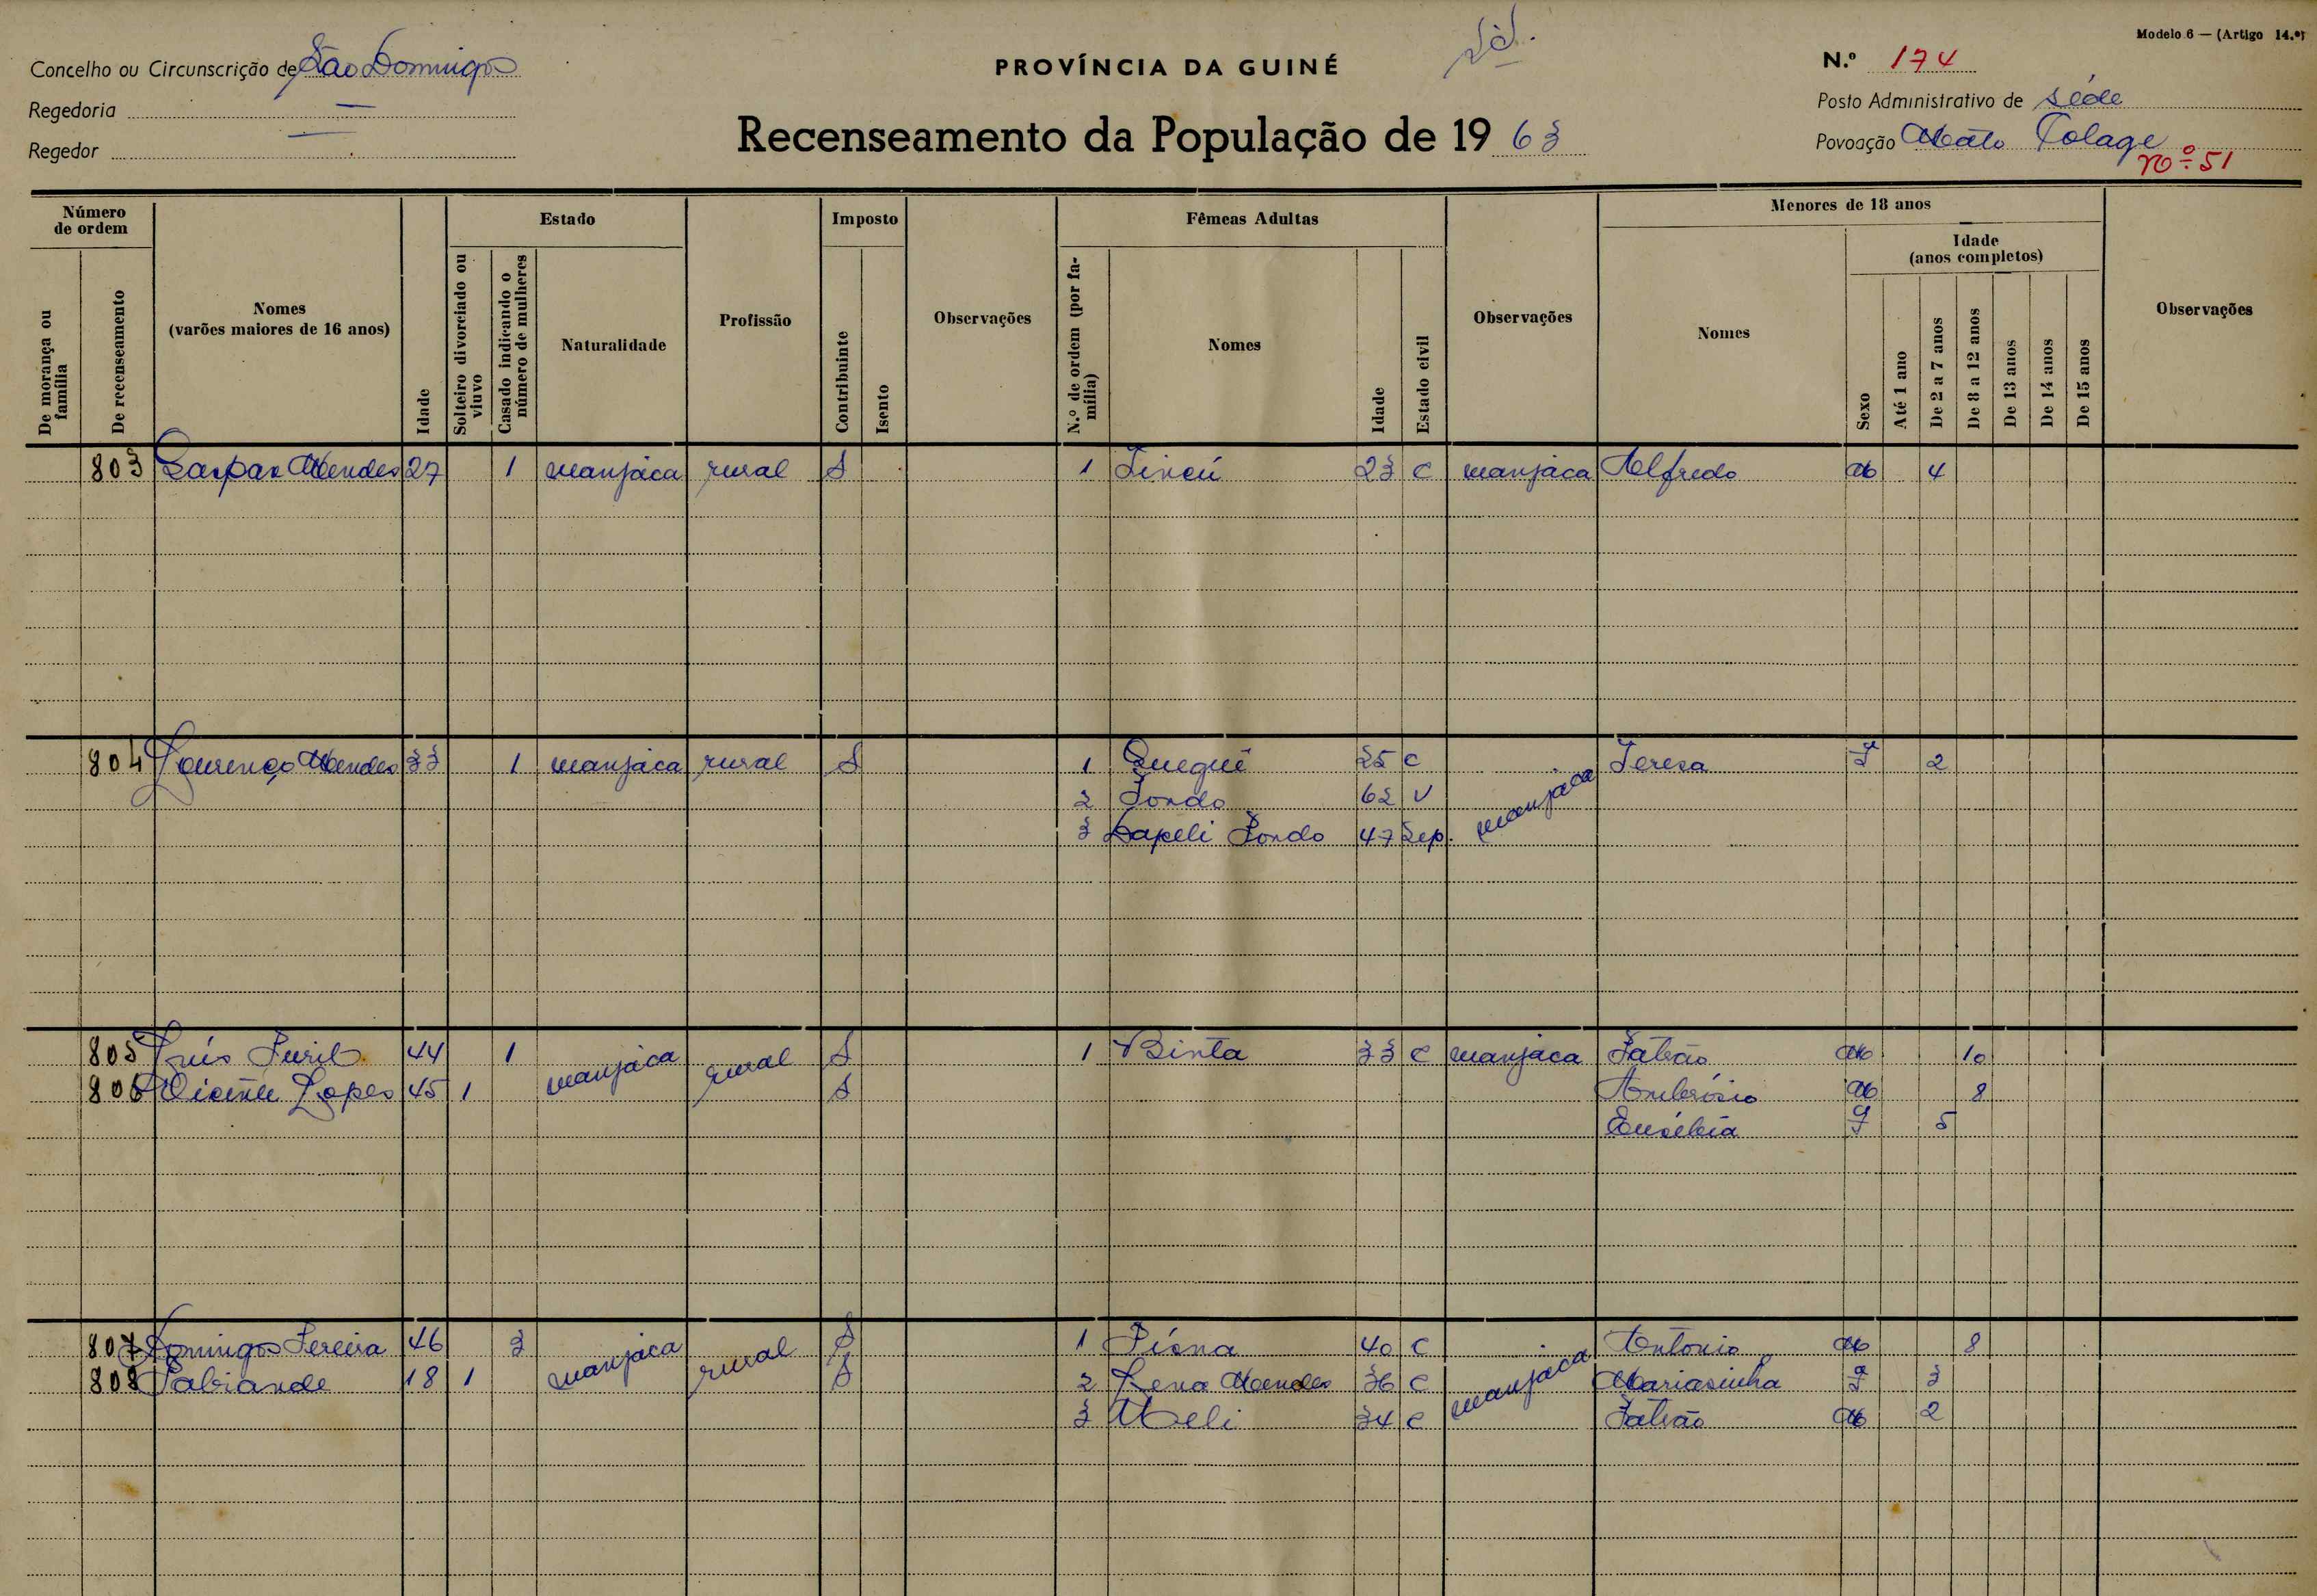 Modelo 6 — (Artigo 14.º)
Concelho ou Circunscrição de São Domingos
PROVÍNCIA DA GUINÉ
N.º 174
Regedoria —
Posto Administrativo de Séde
Regedor —
Recenseamento da População de 1963
Povoação Mato
nº 51
Número de ordem
De morança ou família
De recenseamento
Nomes
(varões maiores de 16 anos)
Idade
Estado
Solteiro divorciado ou viuvo
Casado indicando o número de mulheres
Naturalidade
Profissão
Imposto
Contribuinte
Isento
Observações
Fêmeas Adultas
N.º de ordem (por família)
Nomes
Idade
Estado civil
Observações
Menores de 18 anos
Nomes
Idade
(anos completos)
Sexo
Até 1 ano
De 2 a 7 anos
De 8 a 12 anos
De 13 anos
De 14 anos
De 15 anos
Observações
803 Gaspar Mendes 27 1 manjaca rural S 1 23 c manjaca Alfredo M 4
804 Lourenço Mendes 33 1 manjaca rural S 1 Quequé 25 c manjaca Teresa F 2
2 62 V
3 47 Sep.
805 Luís 44 1 manjaca rural S 1 Binta 33 c manjaca M 10
806 Vicente Lopes 45 1 S Ambrósio M 8
Eusébia F 5
807 Domingos Pereira 46 3 manjaca rural S 1 40 c manjaca António M 8
808 18 1 S 2 Mendes 36 c Mariasinha F 3
3 34 c M 2